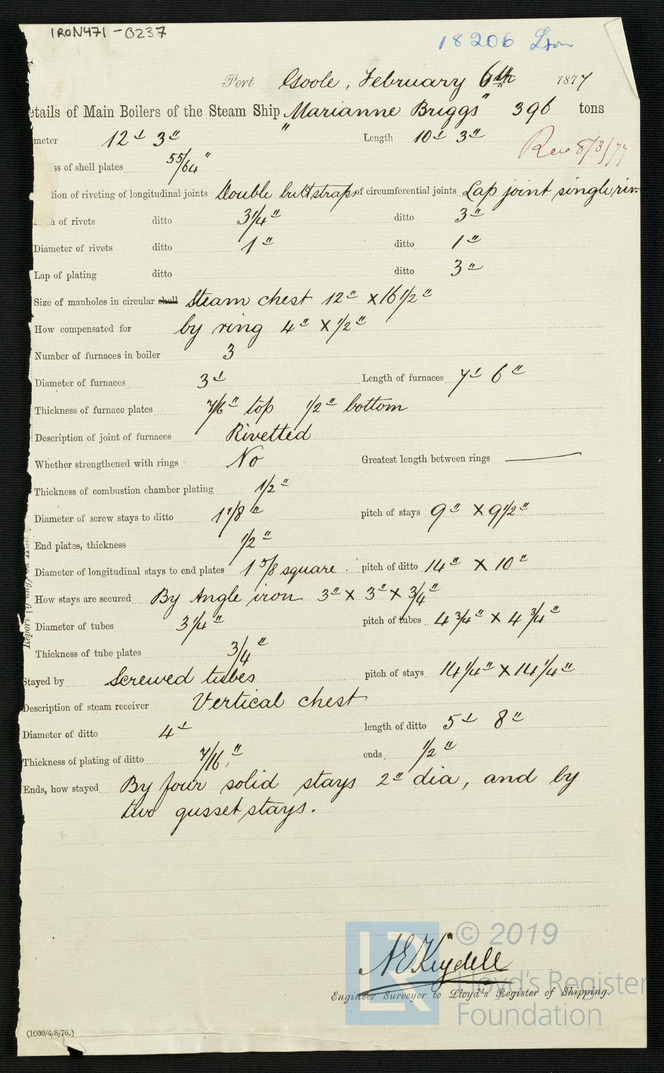 IRON471-0237
18206 Iron
Port Goole, February 6th 1877
etails of Main Boilers of the Steam Ship "Marianne Briggs" 396 tons
meter 12' 3" Length 10' 3"
Rec 8/3/77
ss of shell plates 55/64"
tion of riveting of longitudinal joints Double butt straps of circumferential joints Lap joint single riv
h of rivets ditto 3 1/4" ditto 3"
Diameter of rivets ditto 1" ditto 1"
Lap of plating ditto ditto 3"
Size of manholes in circular shell Steam chest 12" x 16 1/2"
How compensated for by ring 4" x 1/2"
Number of furnaces in boiler 3
Diameter of furnaces 3' Length of furnaces 7' 6"
Thickness of furnace plates 7/16" top 1/2" bottom
Description of joint of furnaces Rivetted
Whether strengthened with rings No Greatest length between rings
Thickness of combustion chamber plating 1/2"
Diameter of screw stays to ditto 1 1/8" pitch of stays 9" x 9 1/2"
End plates, thickness 1/2"
Diameter of longitudinal stays to end plates 1 5/8 square pitch of ditto 14" x 10"
How stays are secured By Angle iron 3" x 3" x 3/4"
Diameter of tubes 3 1/4" pitch of tubes 4 3/4" x 4 3/4"
Thickness of tube plates 3/4"
Stayed by Screwed tubes pitch of stays 14 1/4" x 14 1/4"
Description of steam receiver Vertical chest
Diameter of ditto 4' length of ditto 5' 8"
Thickness of plating of ditto 7/16" ends 1/2"
Ends, how stayed By four solid stays 2" dia, and by
two gusset stays.
© 2019
Lloyd's Register
Foundation
A E Keydell
Engineer Surveyor to Lloyd's Register of Shipping.
(1000/4/8/76.)